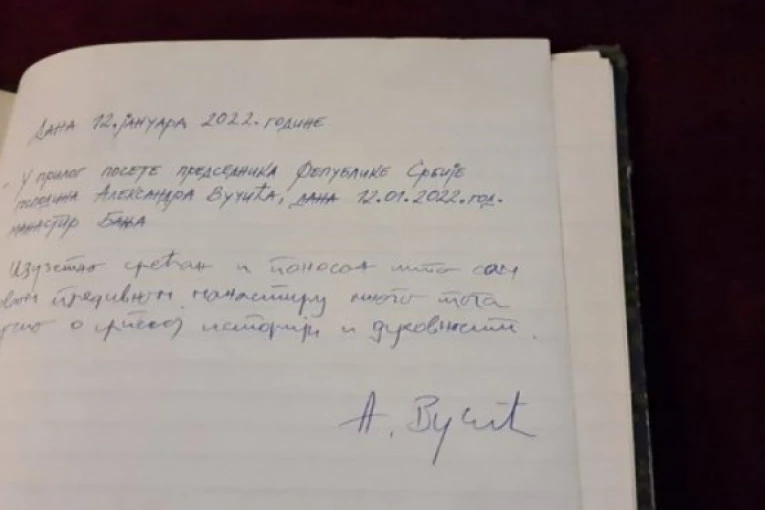 Дана 12. јануара 2022. године
У прилог посете председника Републике Србије
господина Александра Вучића, дана 12.01.2022. год.
манастир Бања
Изузетно срећан и поносан што сам
овом предивном манастиру много тога
о српској историји и духовности.
А. Вучић